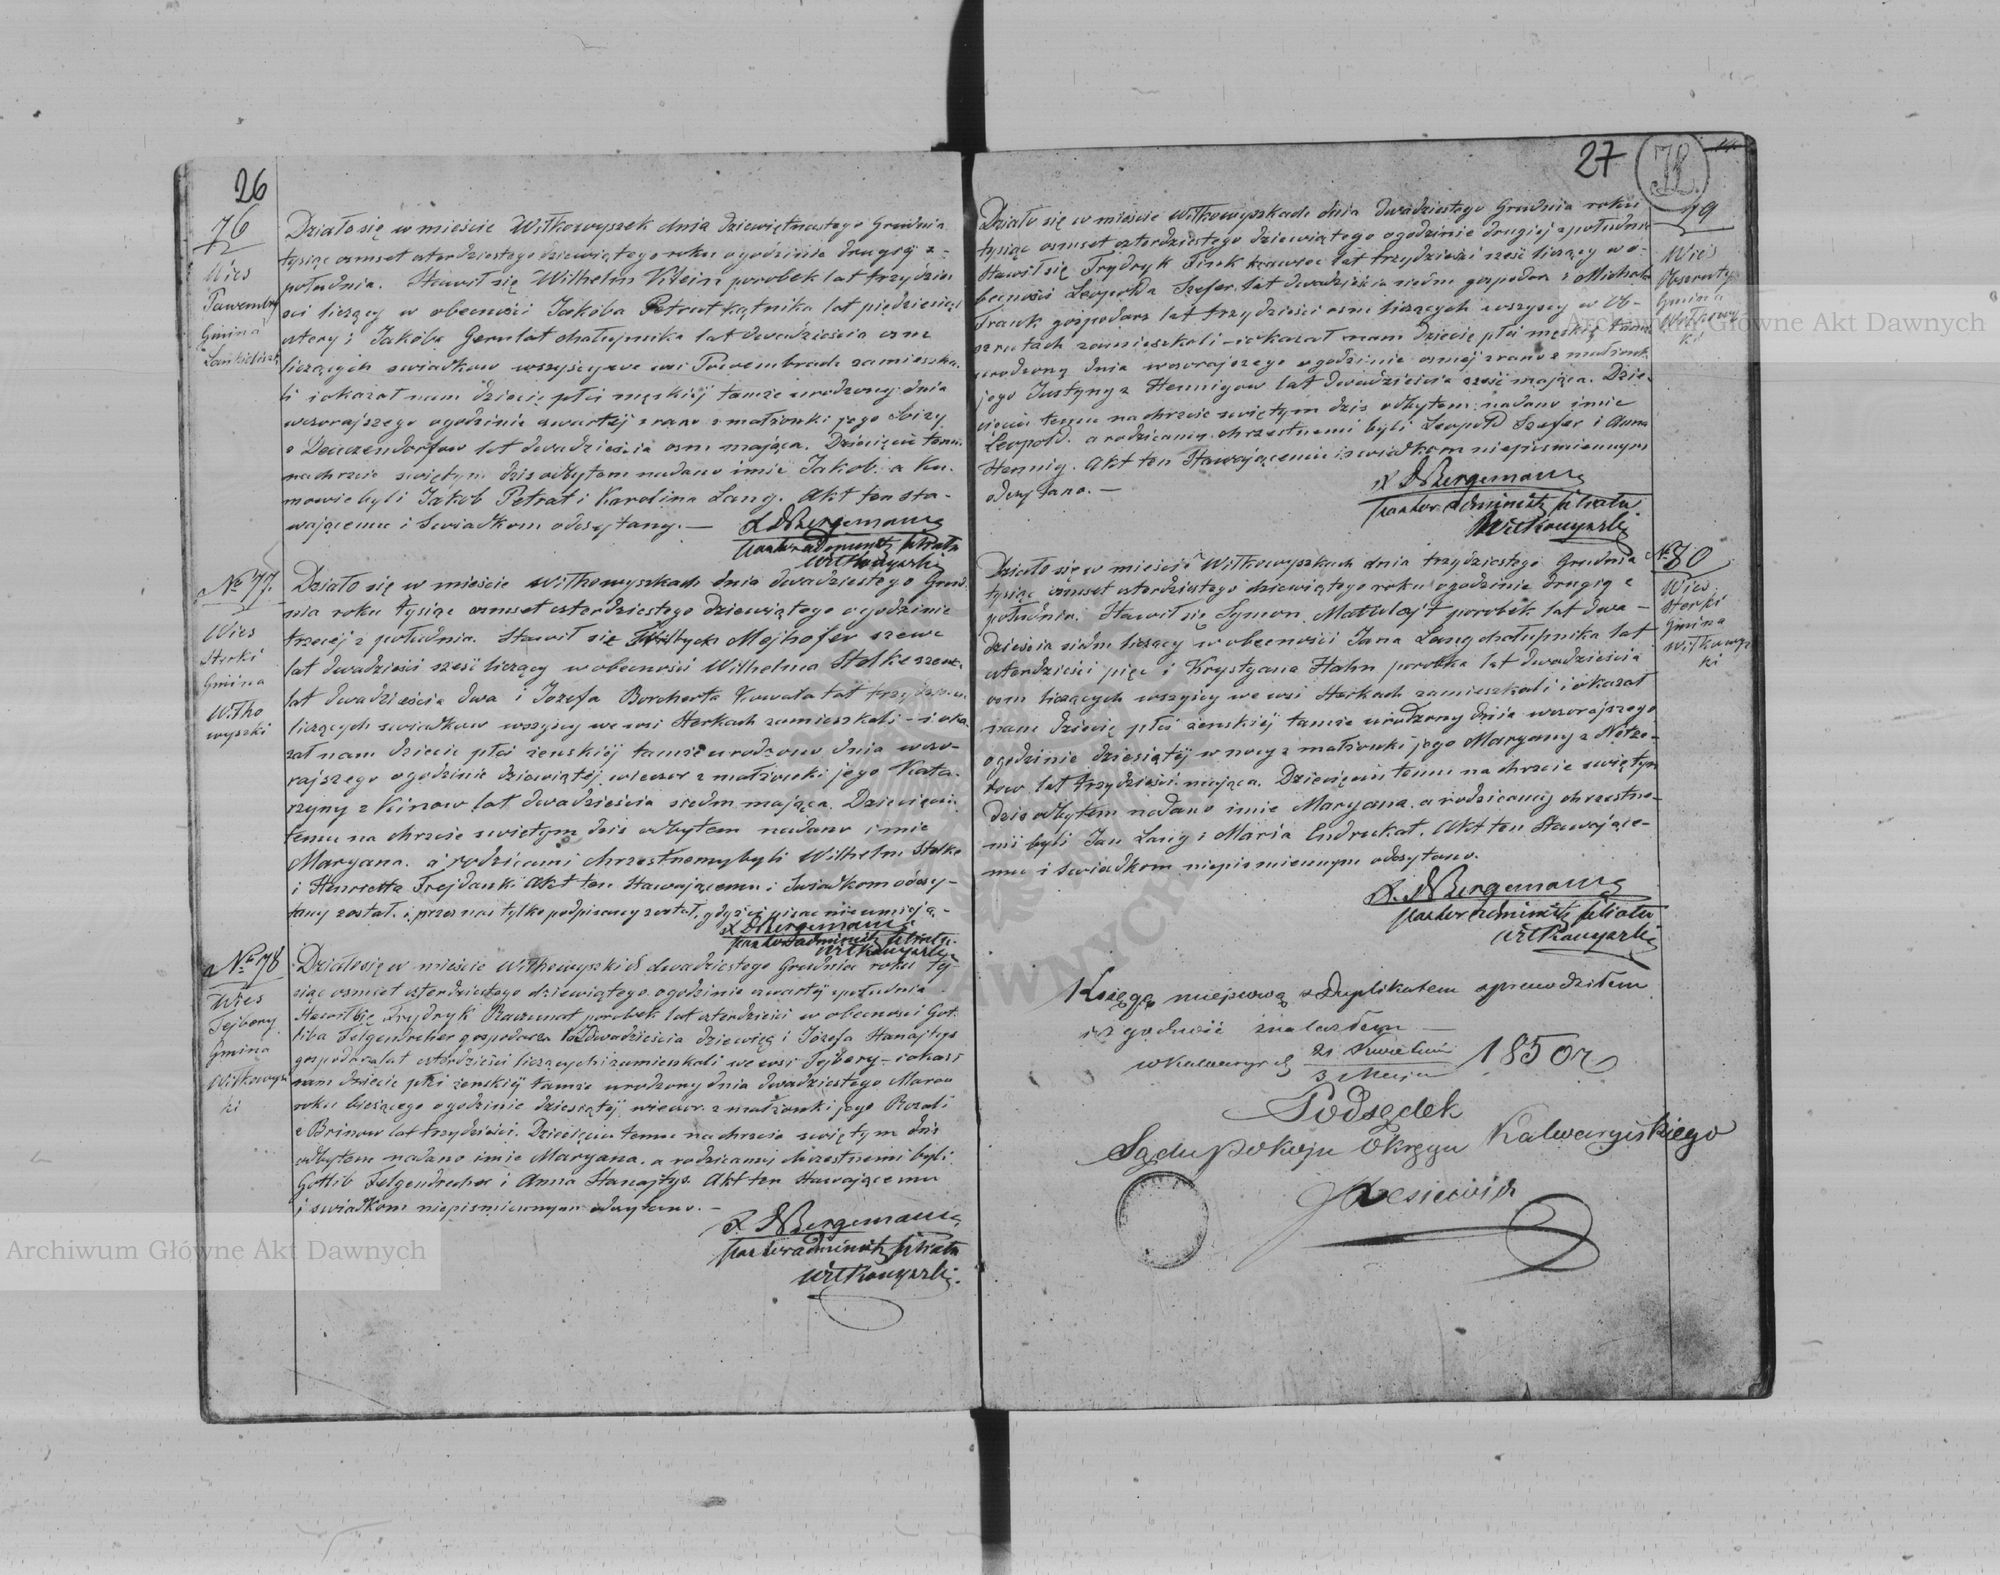 26
76
Wieś
Pawembry
Gmina
Działo się w mieście Wiłkowyszek dnia dziewiętnastego Grudnia
tysiąc osmset czterdziestego dziewiątego roku o godzinie drugiej z
południa. Stawił się Wilhelm Klein parobek lat trzydzieś
ci liczący w obecności Jakóba Petrat kątnika lat pięćdziesiąt
cztery i Jakóba Gerulat chałupnika lat dwadzieścia osm
liczących swiadkow wszyscy we wsi zamieszka
li i okazał nam dziecię płci męskiej tamże urodzony dnia
wczorajszego o godzinie czwartej z rana z małżonki jego Luizy
z lat dwadzieścia osm mająca. Dziecięciu temu
na chrzcie swiętym dziś odbytem nadano imie Jakob. a Ku
mowie byli Jakob Petrat i Karolina Lang. Akt ten sta-
wającemu i Swiadkom odczytany. —
Bergemann
Pastor administ filiału
Wiłkowyszki
No 77.
Wies
Sterki
Gmina
Wiłko
wyszki
Działo się w mieście Wiłkowyszkach dnia dwadziestego Grud
nia roku tysiąc osmset czterdziestego dziewiątego o godzinie
trzeciej z południa. Stawił się Mejhofer szewc
lat dwadzieści sześć liczący w obecności Wilhelma Stelke szewc
lat dwadzieścia dwa i Jozefa Borcherta Kowala lat
liczących swiadkow wszyscy we wsi Sterkach zamieszkali — i oka
zał nam dziecie płci żenskiej tamże urodzono dnia wczo-
rajszego o godzinie dziewiątej wieczor z małżonki jego Kata
rzyny z Kinow lat dwadzieścia siedm mająca. Dziecięciu
temu na chrzcie swiętym dziś odbytem nadano imie
Maryana. a rodzicami chrzestnemy byli Wilhelm Stelke
i Henrietta Akt ten Stawającemu i Swiadkom odczy-
tany został. i przez nas tylko podpisany został, gdyż ci pisac nie umieją.-
Bergemann
Pastor administ filiału
Wiłkowyszki
No 78
Wies
Tejbery
Gmina
Wiłkowysz
ki
Działo się w mieście dwadziestego Grudnia roku ty-
siąc osmset czterdziestego dziewiątego o godzinie czwartej z południa
Stawił się Frydryk parobek lat czterdzieści w obecności Got
liba Felgendreher gospodarza lat dwadzieścia dziewięć i Józefa Stanajtys
gospodarza lat czterdzieści liczących i zamieszkali we wsi Tejbery — i okazał
nam dziecie płci żenskiej tamże urodzony dnia dwadziestego Marca
roku bieżącego o godzinie dziesiątej wieczor z małżonki jego Rozali
z Brinow lat trzydzieści. Dziecięciu temu na chrzcie swiętym dziś
odbytem nadano imie Maryana. a rodzicamij chrzestnemi byli
Gotlib Felgendreher i Anna Stanajtys. Akt ten Stawającemu
i swiadkom niepismiennym odczytano. —
Bergemann
Pastor administ filiału
Wiłkowyszki.
27
79
Wies
Gmina
Wiłkowysz
ki
Działo się w mieście Wiłkowyszkach dnia dwadziestego Grudnia roku
tysiąc osmset czterdziestego dziewiątego o godzinie drugiej z południa
Stawił się Frydryk krawiec lat trzydzieści sześć liczący w o-
becności Leopolda Szefer lat dwadzieścia siedm gospodarz i Michała
Frank gospodarz lat trzydzieści osm liczących wszyscy w Ob-
szrutach zamieszkali — i okazał nam dziecię płci męskiej tamże
urodzony dnia wczorajszego o godzinie osmej z rana z małżonki
jego Justyny z Hennigow lat dwadzieścia sześć mająca. Dzie-
cięciu temu na chrzcie swiętym dzis odbytem nadano imie
Leopold. a rodzicamy chrzestnemi byli Leopold Szefer i Anna
Hennig. Akt ten Stawającemu i swiadkom niepismiennym
odczytano. —
Bergemann
Pastor administ filiału
Wiłkowyszki
No 80
Wies
Sterki
Gmina
Wiłkowysz
ki
Działo się w mieście Wiłkowyszkach dnia trzydziestego Grudnia
tysiąc osmset czterdziestego dziewiątego roku o godzinie drugiej z
południa. Stawił się Symon Matulajt parobek lat dwa-
dzieścia siedm liczący w obecności Jana Lang chałupnika lat
czterdzieści pięć i Krystyana Hahn parobka lat dwadzieścia
osm liczących wszyscy we wsi Sterkach zamieszkali i okazał
nam dziecię płci żenskiej tamże urodzony dnia wczorajszego
o godzinie dziesiątej w nocy z małżonki jego Maryany z
lat trzydzieści mająca. Dziecięciu temu na chrzcie swiętym
dzis odbytem nadano imie Maryana. a rodzicamij chrzestne-
mi byli Jan Lang i Maria Endrukat. Akt ten Stawające-
mu i swiadkom niepismiennym odczytano.
Bergemann
Pastor administ filiału
Wiłkowyszki
Księgę miejscową z Duplikatem sprawdziłem
i zgodność znalazłem —
w Kalwaryi d 21 Kwietnia / 3 Maja 1850 r
Podsędek
Sądu Pokoju Okręgu Kalwaryiskiego
Archiwum Główne Akt Dawnych
Archiwum Główne Akt Dawnych
Archiwum Główne Akt Dawnych